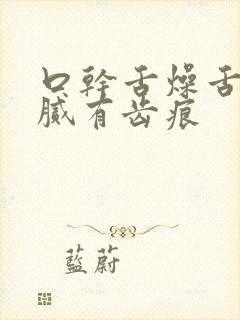 口幹舌燥舌
膩有齿痕
藍蔚